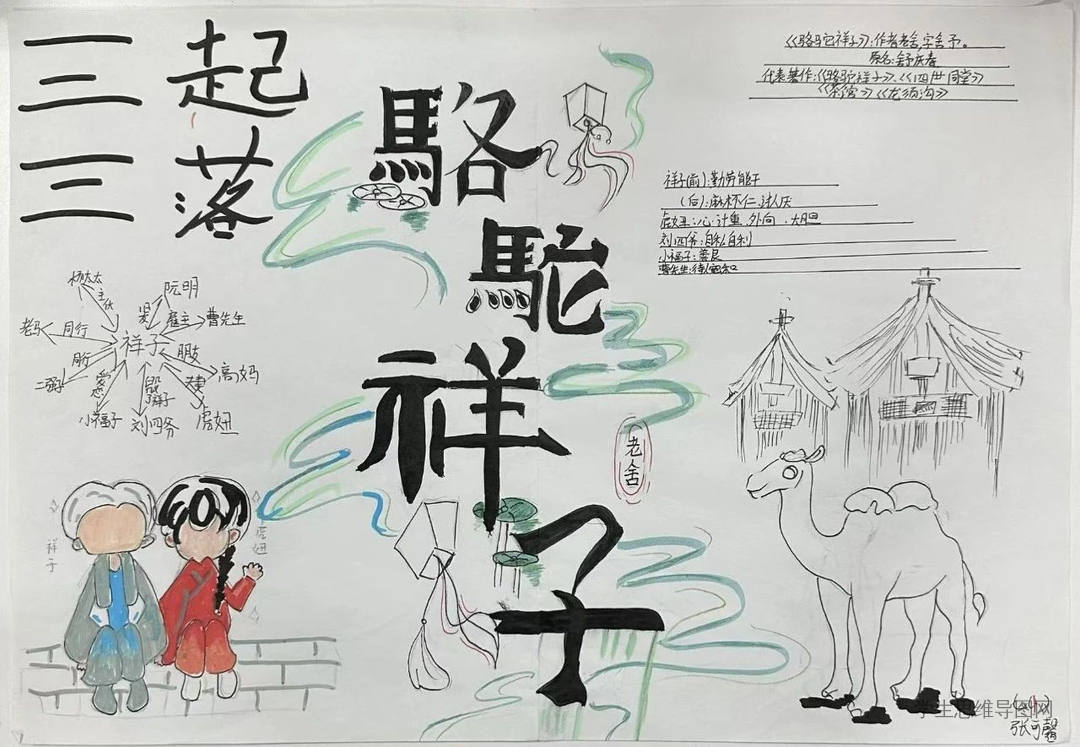 三 起
三 落
駱
駝
祥
子
老舍
《骆驼祥子》:作者老舍,字舍予。
原名:舒庆春
代表著作:《骆驼祥子》、《四世同堂》
《茶馆》《龙须沟》
祥子(前):勤劳能干
(后):麻木不仁、讨人厌
虎妞:心计重、外向、大胆
刘四爷:自私自利
小福子:善良
曹先生:待人温和
杨太太
主仆
阮明
雇主
曹先生
老马
同行
祥子
朋友
高妈
同行
二强子
恋爱
小福子
刘四爷
夫妻
虎妞
祥子
虎妞
学生思维导图网
张可馨